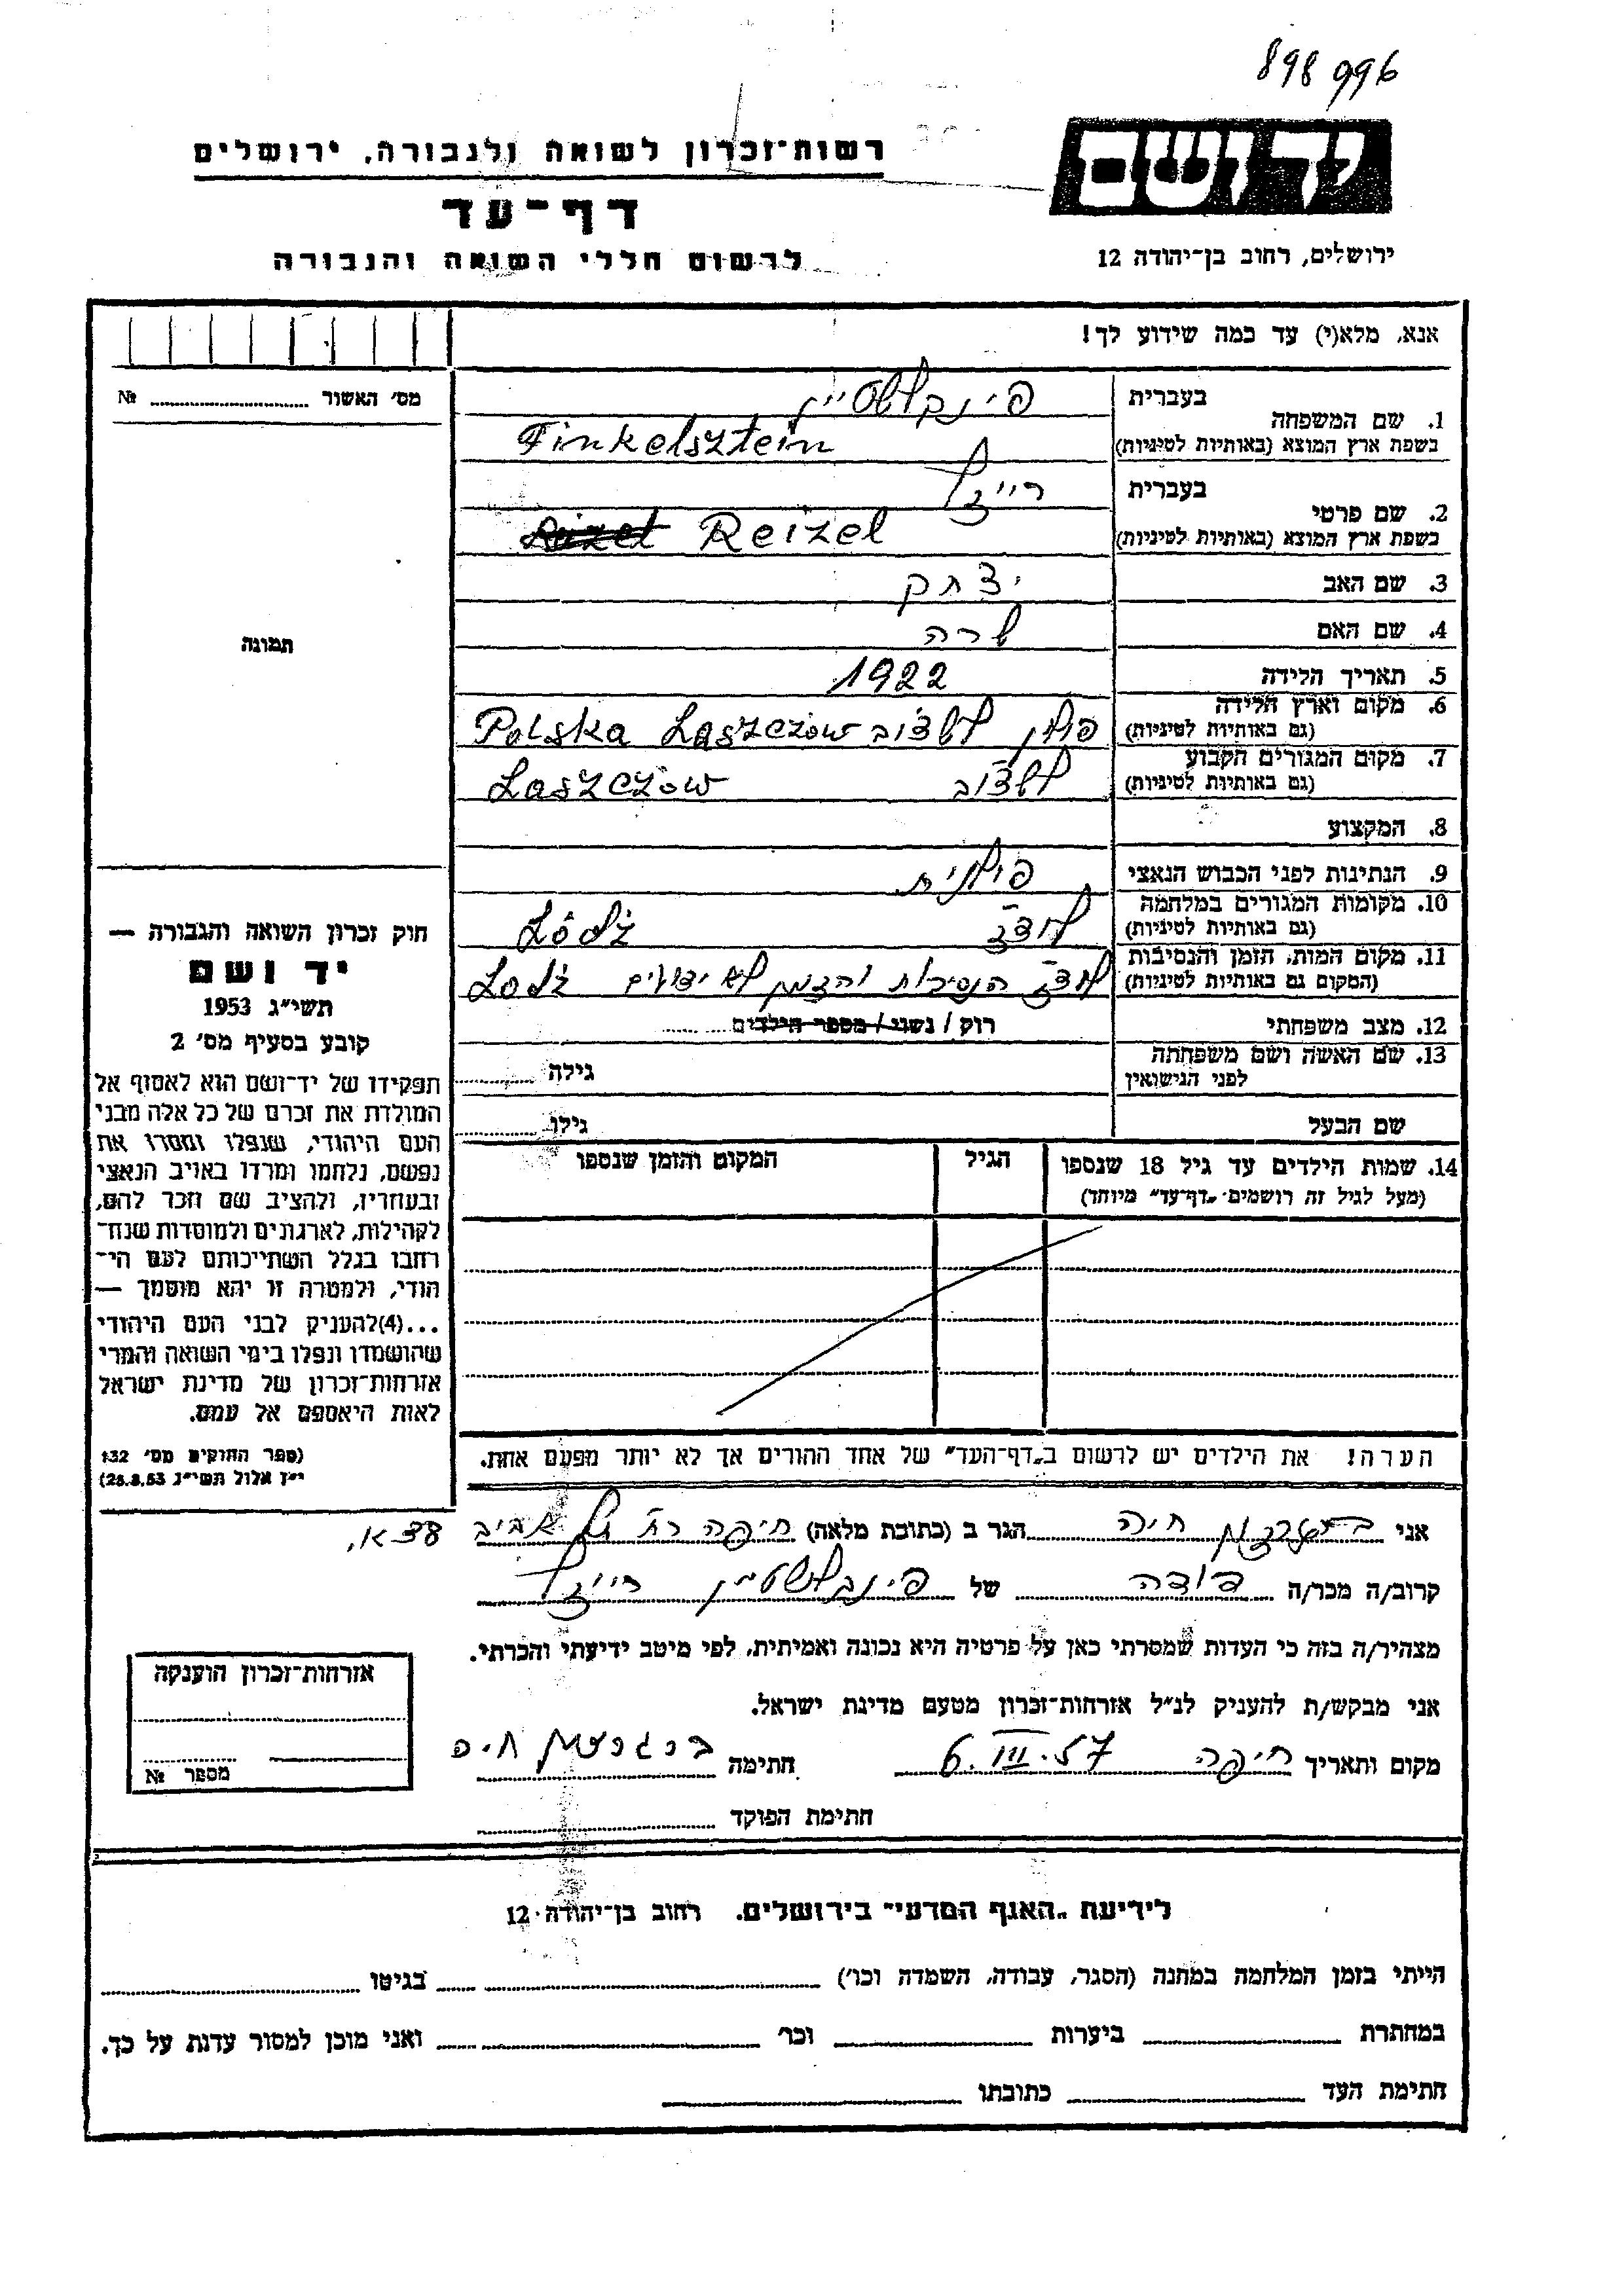 898 996
רשות־זכרון לשואה ולגבורה, ירושלים
יד ושם
דף־עד
לרשום חללי השואה והגבורה
ירושלים, רחוב בן־יהודה 12
אנא, מלא(י) עד כמה שידוע לך!
מס׳ האשור № 
1. שם המשפחה
בעברית פינקלשטיין
בשפת ארץ המוצא (באותיות לטיניות) Finkelsztein
2. שם פרטי
בעברית רייזל
בשפת ארץ המוצא (באותיות לטיניות) Reizel
3. שם האב יצחק
4. שם האם שרה
5. תאריך הלידה 1922
6. מקום וארץ הלידה
(גם באותיות לטיניות) פולין לשצוב Polska Laszczów
7. מקום המגורים הקבוע
(גם באותיות לטיניות) לשצוב Laszczów
8. המקצוע
9. הנתינות לפני הכבוש הנאצי פולנית
10. מקומות המגורים במלחמה
(גם באותיות לטיניות) לודז Lódz
11. מקום המות, הזמן והנסיבות
(המקום גם באותיות לטיניות) לודז הנסיבות והזמן לא ידועים Lodz
12. מצב משפחתי רוק / נשוי / מספר הילדים
13. שם האשה ושם משפחתה
לפני הנישואין גילה
שם הבעל גילו
14. שמות הילדים עד גיל 18 שנספו הגיל המקום והזמן שנספו
(מעל לגיל זה רושמים „דף־עד״ מיוחד)
הערה! את הילדים יש לרשום ב„דף־העד״ של אחד ההורים אך לא יותר מפעם אחת.
תמונה
חוק זכרון השואה והגבורה —
יד ושם
תשי״ג 1953
קובע בסעיף מס׳ 2
תפקידו של יד־ושם הוא לאסוף אל
המולדת את זכרם של כל אלה מבני
העם היהודי, שנפלו ומסרו את
נפשם, נלחמו ומרדו באויב הנאצי
ובעוזריו, ולהציב שם וזכר להם,
לקהילות, לארגונים ולמוסדות שנח־
רחבו בגלל השתייכותם לעם הי־
הודי, ולמטרה זו יהא מוסמך —
...(4)להעניק לבני העם היהודי
שהושמדו ונפלו בימי השואה והמרי
אזרחות־זכרון של מדינת ישראל
לאות היאספם אל עמם.
(ספר החוקים מס׳ 132
י״ז אלול תשי״ג 28.8.53)
אני חיה הגר ב (כתובת מלאה) חיפה רח תל אביב 38 א,
קרוב/ה מכר/ה דודה של פינקלשטיין רייזל
מצהיר/ה בזה כי העדות שמסרתי כאן על פרטיה היא נכונה ואמיתית, לפי מיטב ידיעתי והכרתי.
אני מבקש/ת להעניק לנ״ל אזרחות־זכרון מטעם מדינת ישראל.
מקום ותאריך חיפה 6.III.57 חתימה
חתימת הפוקד
אזרחות־זכרון הוענקה
מספר №
לידיעת „האגף המדעי״ בירושלים. רחוב בן־יהודה 12
הייתי בזמן המלחמה במחנה (הסגר, עבודה, השמדה וכו׳) בגיטו
במחתרת ביערות וכו׳ ואני מוכן למסור עדות על כך.
חתימת העד כתובתו